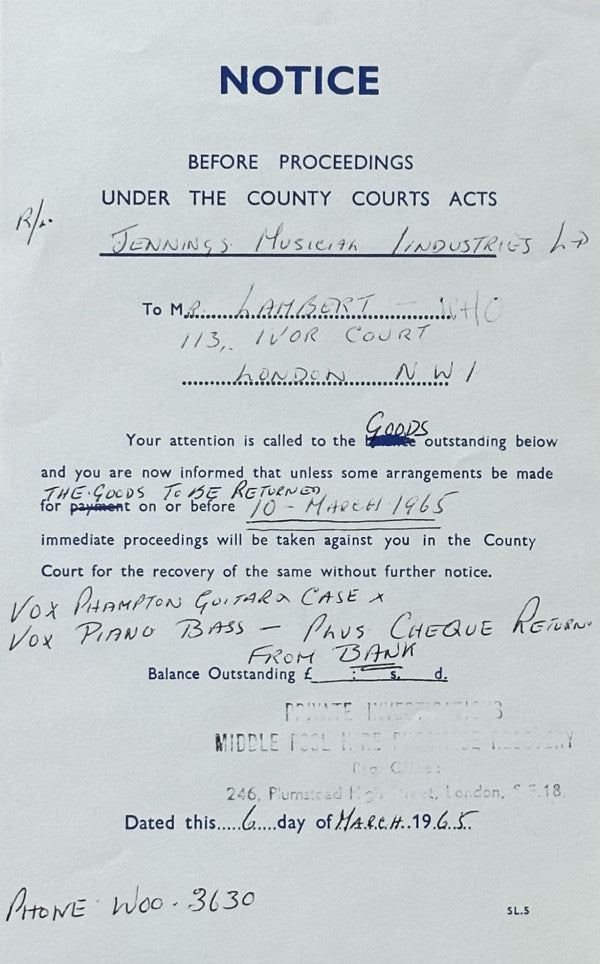 NOTICE
BEFORE PROCEEDINGS
UNDER THE COUNTY COURTS ACTS
R/L.
JENNINGS MUSICIAL INDUSTRIES LTD
To MR. LAMBERT - WHO
113, IVOR COURT
LONDON NW1
GOODS
Your attention is called to the outstanding below
and you are now informed that unless some arrangements be made
THE GOODS TO BE RETURNED
for payment on or before 10 - MARCH 1965
immediate proceedings will be taken against you in the County
Court for the recovery of the same without further notice.
VOX PHAMPTON GUITAR & CASE x
VOX PIANO BASS - PLUS CHEQUE RETURN
FROM BANK
Balance Outstanding £ : s. d.
PRIVATE INVESTIGATIONS
MIDDLE POOL HIRE PURCHASE RECOVERY
Reg. Office:
246, Plumstead High Street, London, S.E.18.
Dated this.....6....day of MARCH..1965
PHONE WOO - 3630
SL.5